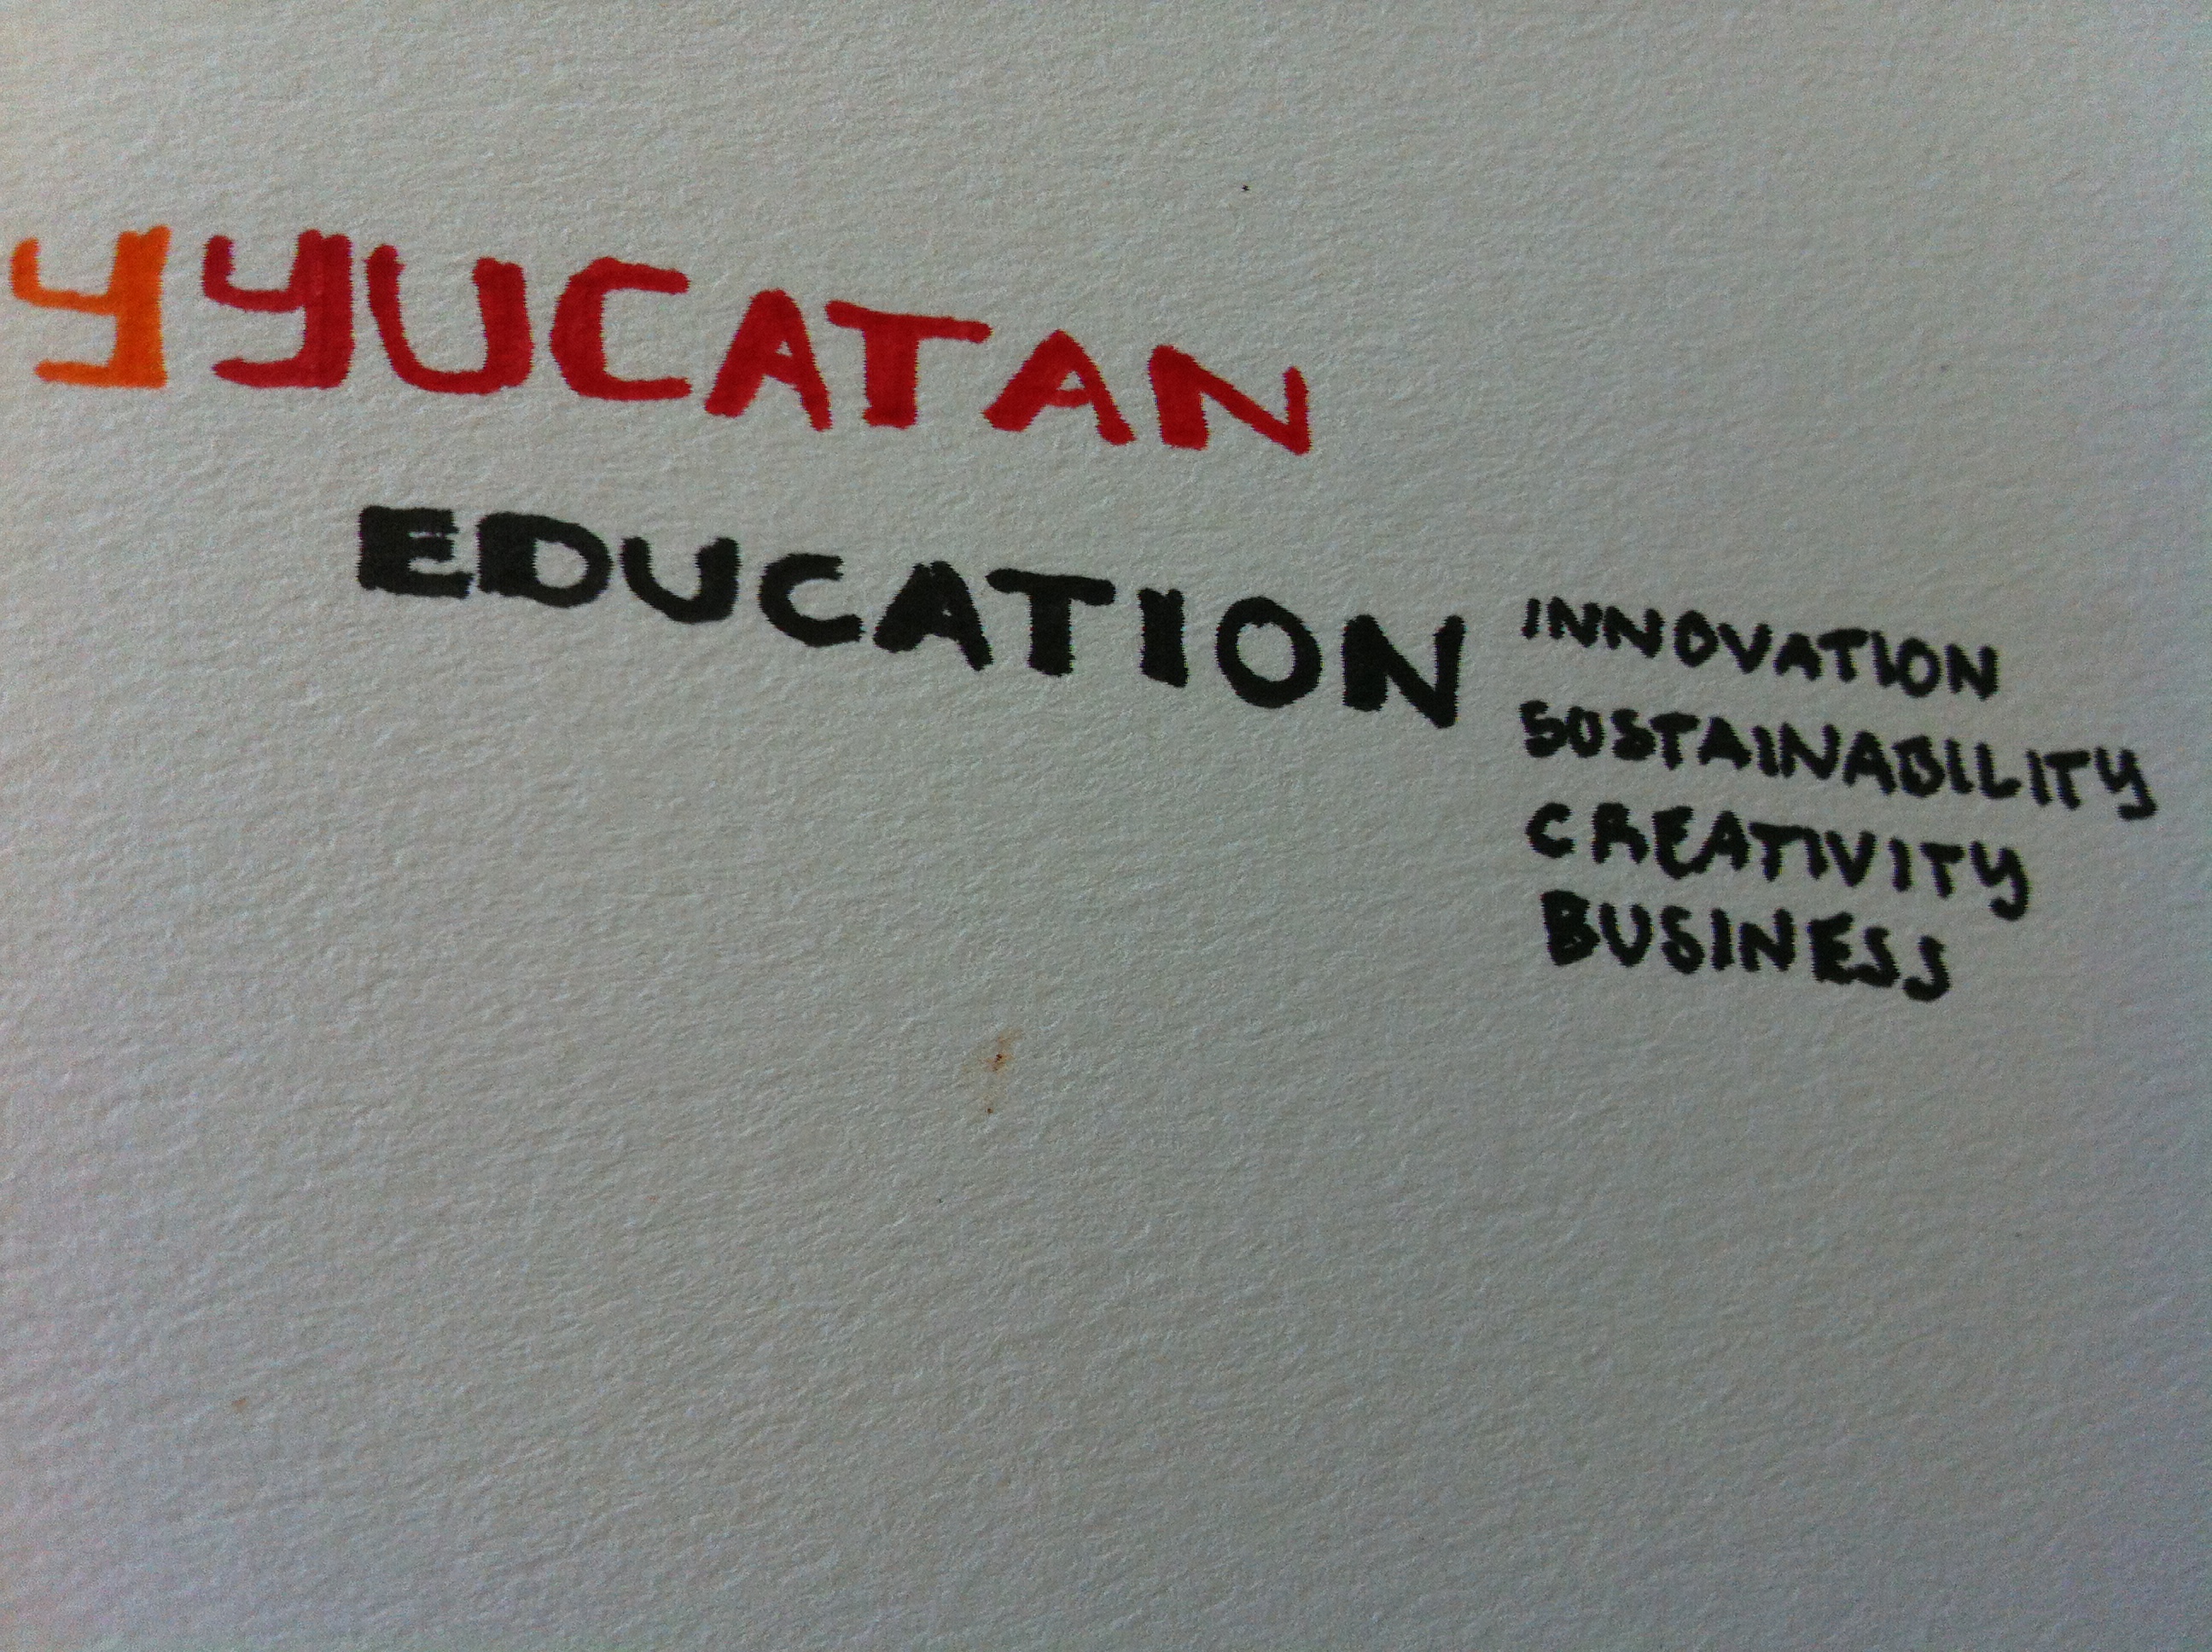 Y YUCATAN
EDUCATION
INNOVATION
SOSTAINABILITY
CREATIVITY
BUSINESS